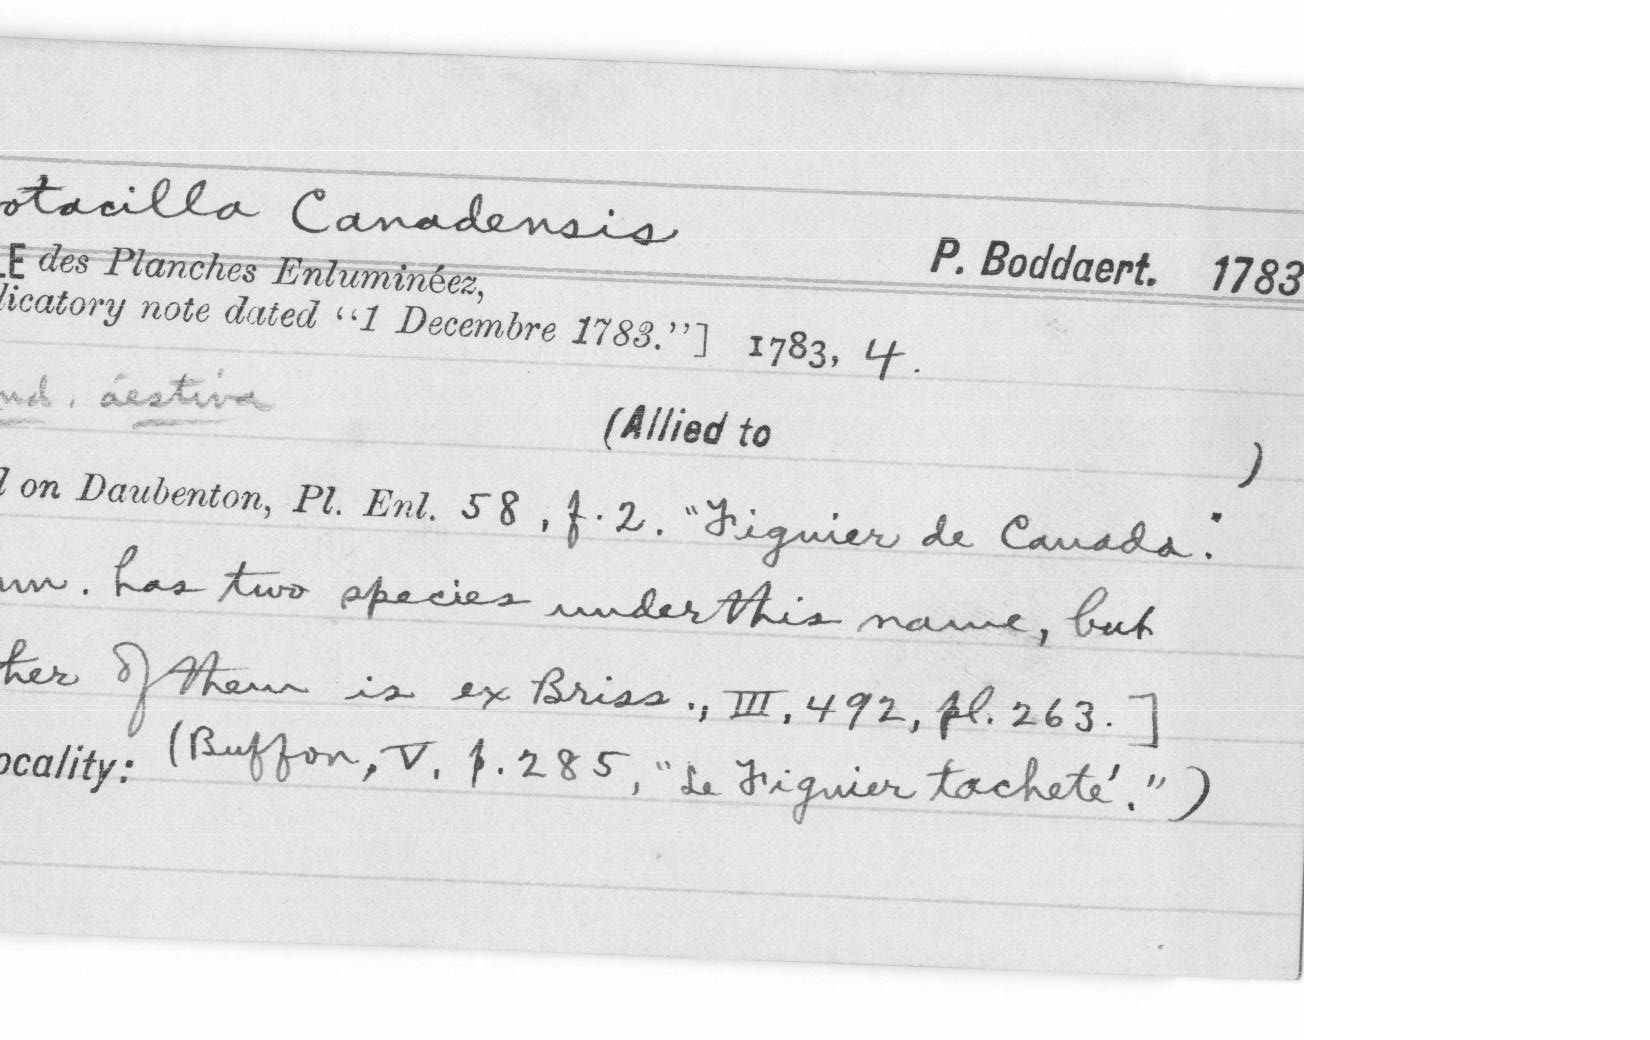 otacilla Canadensis
P. Boddaert. 1783
LE des Planches Enluminéez,
licatory note dated "1 Decembre 1783."] 1783, 4.
nd. aestiva
(Allied to )
l on Daubenton, Pl. Enl. 58, f. 2. "Figuier de Canada."
nn. has two species under this name, but
ther of them is ex Briss., III, 492, pl. 263.]
ocality: (Buffon, V. p. 285, "Le Figuier tacheté.")